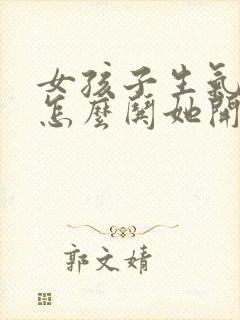 女孩子生氣
怎麼鬨她開
郭文婧